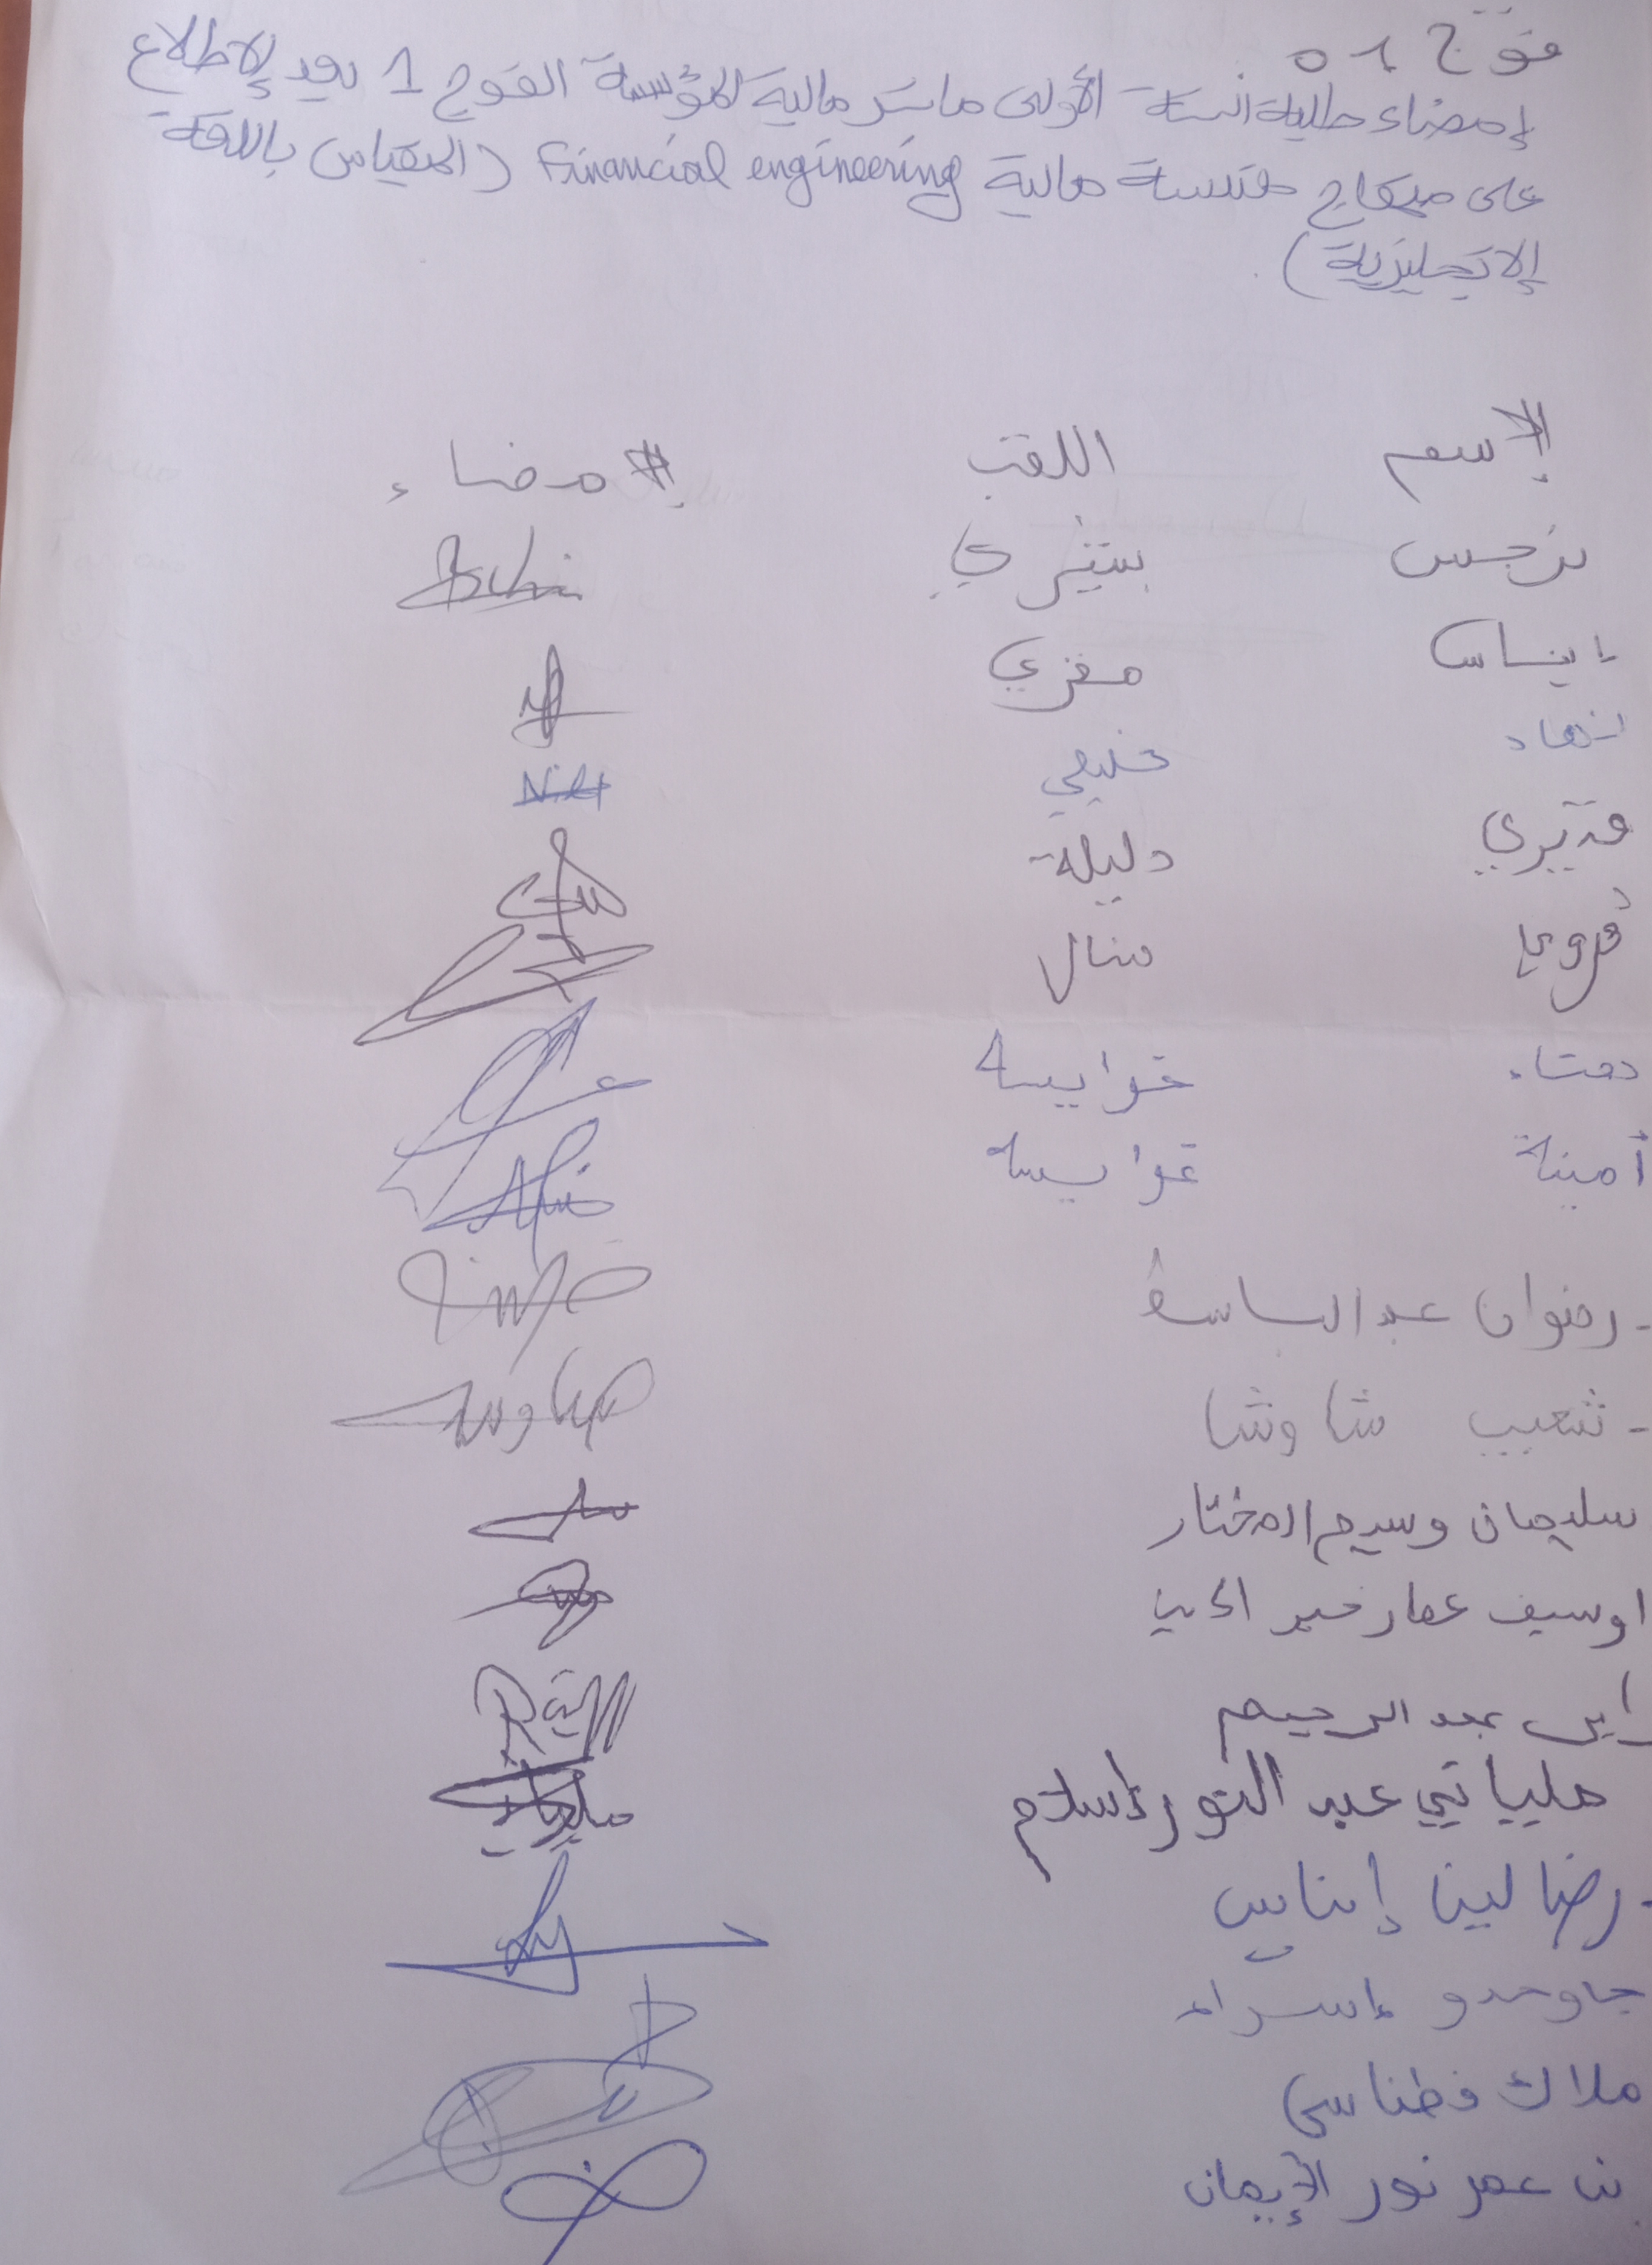 فوج 01
إمضاء طلبة السنة الأولى ماستر مالية المؤسسة الفوج 1 بعد الإطلاع
على منهاج هندسة مالية Financial engineering (المقياس باللغة
الإنجليزية)
الإسم اللقب الإمضاء
نرجس بشيري
إيناس مغزي
نهاد خليفي
قديري دليلة
قروي منال
دعاء غوايسة
أمينة غوايسة
- رضوان عبد الباسط
- شعيب شاوشا
سليمان وسيم المختار
اوسيف عمار خير الدين
رابي عبد الرحيم
مليا تي عبد النور إسلام
- رضا لينا إيناس
جاوحدو إسراء
ملاك فطناسي
بن عمر نور الإيمان